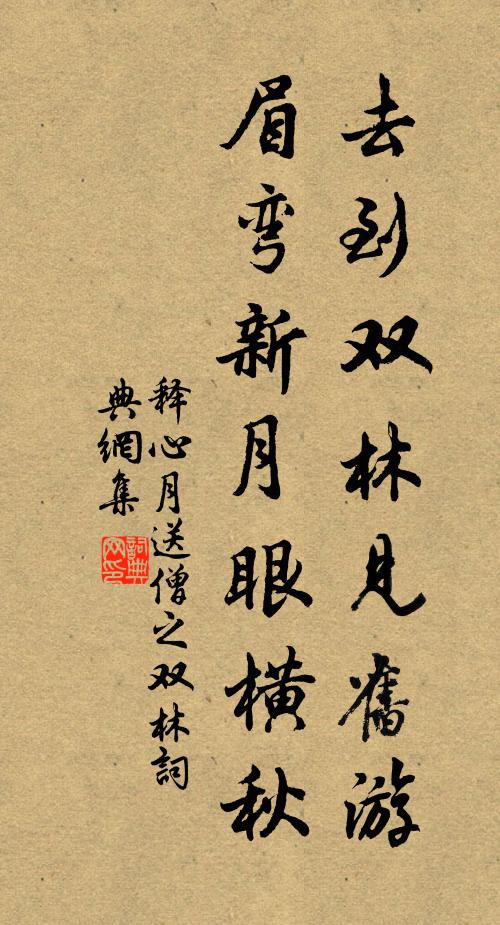 去到双林見舊游
眉弯新月眼横秋
释心月送僧之双林詞
典網集
詞典
网印